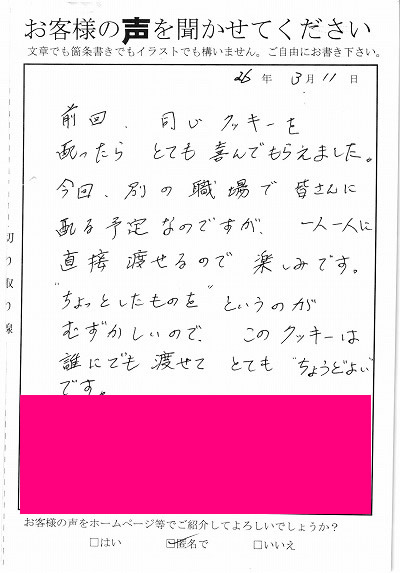 お客様の声を聞かせてください
文章でも箇条書きでもイラストでも構いません。ご自由にお書き下さい。
26年3月11日
前回、同じクッキーを
配ったら とても喜んでもらえました。
今回、別の職場で皆さんに
配る予定なのですが、一人一人に
直接渡せるので楽しみです。
"ちょっとしたものを"というのが
むずかしいので、このクッキーは
誰にでも渡せて とても"ちょうどよい"
です。
切り取り線
お客様の声をホームページ等でご紹介してよろしいでしょうか?
□はい ☑匿名で □いいえ